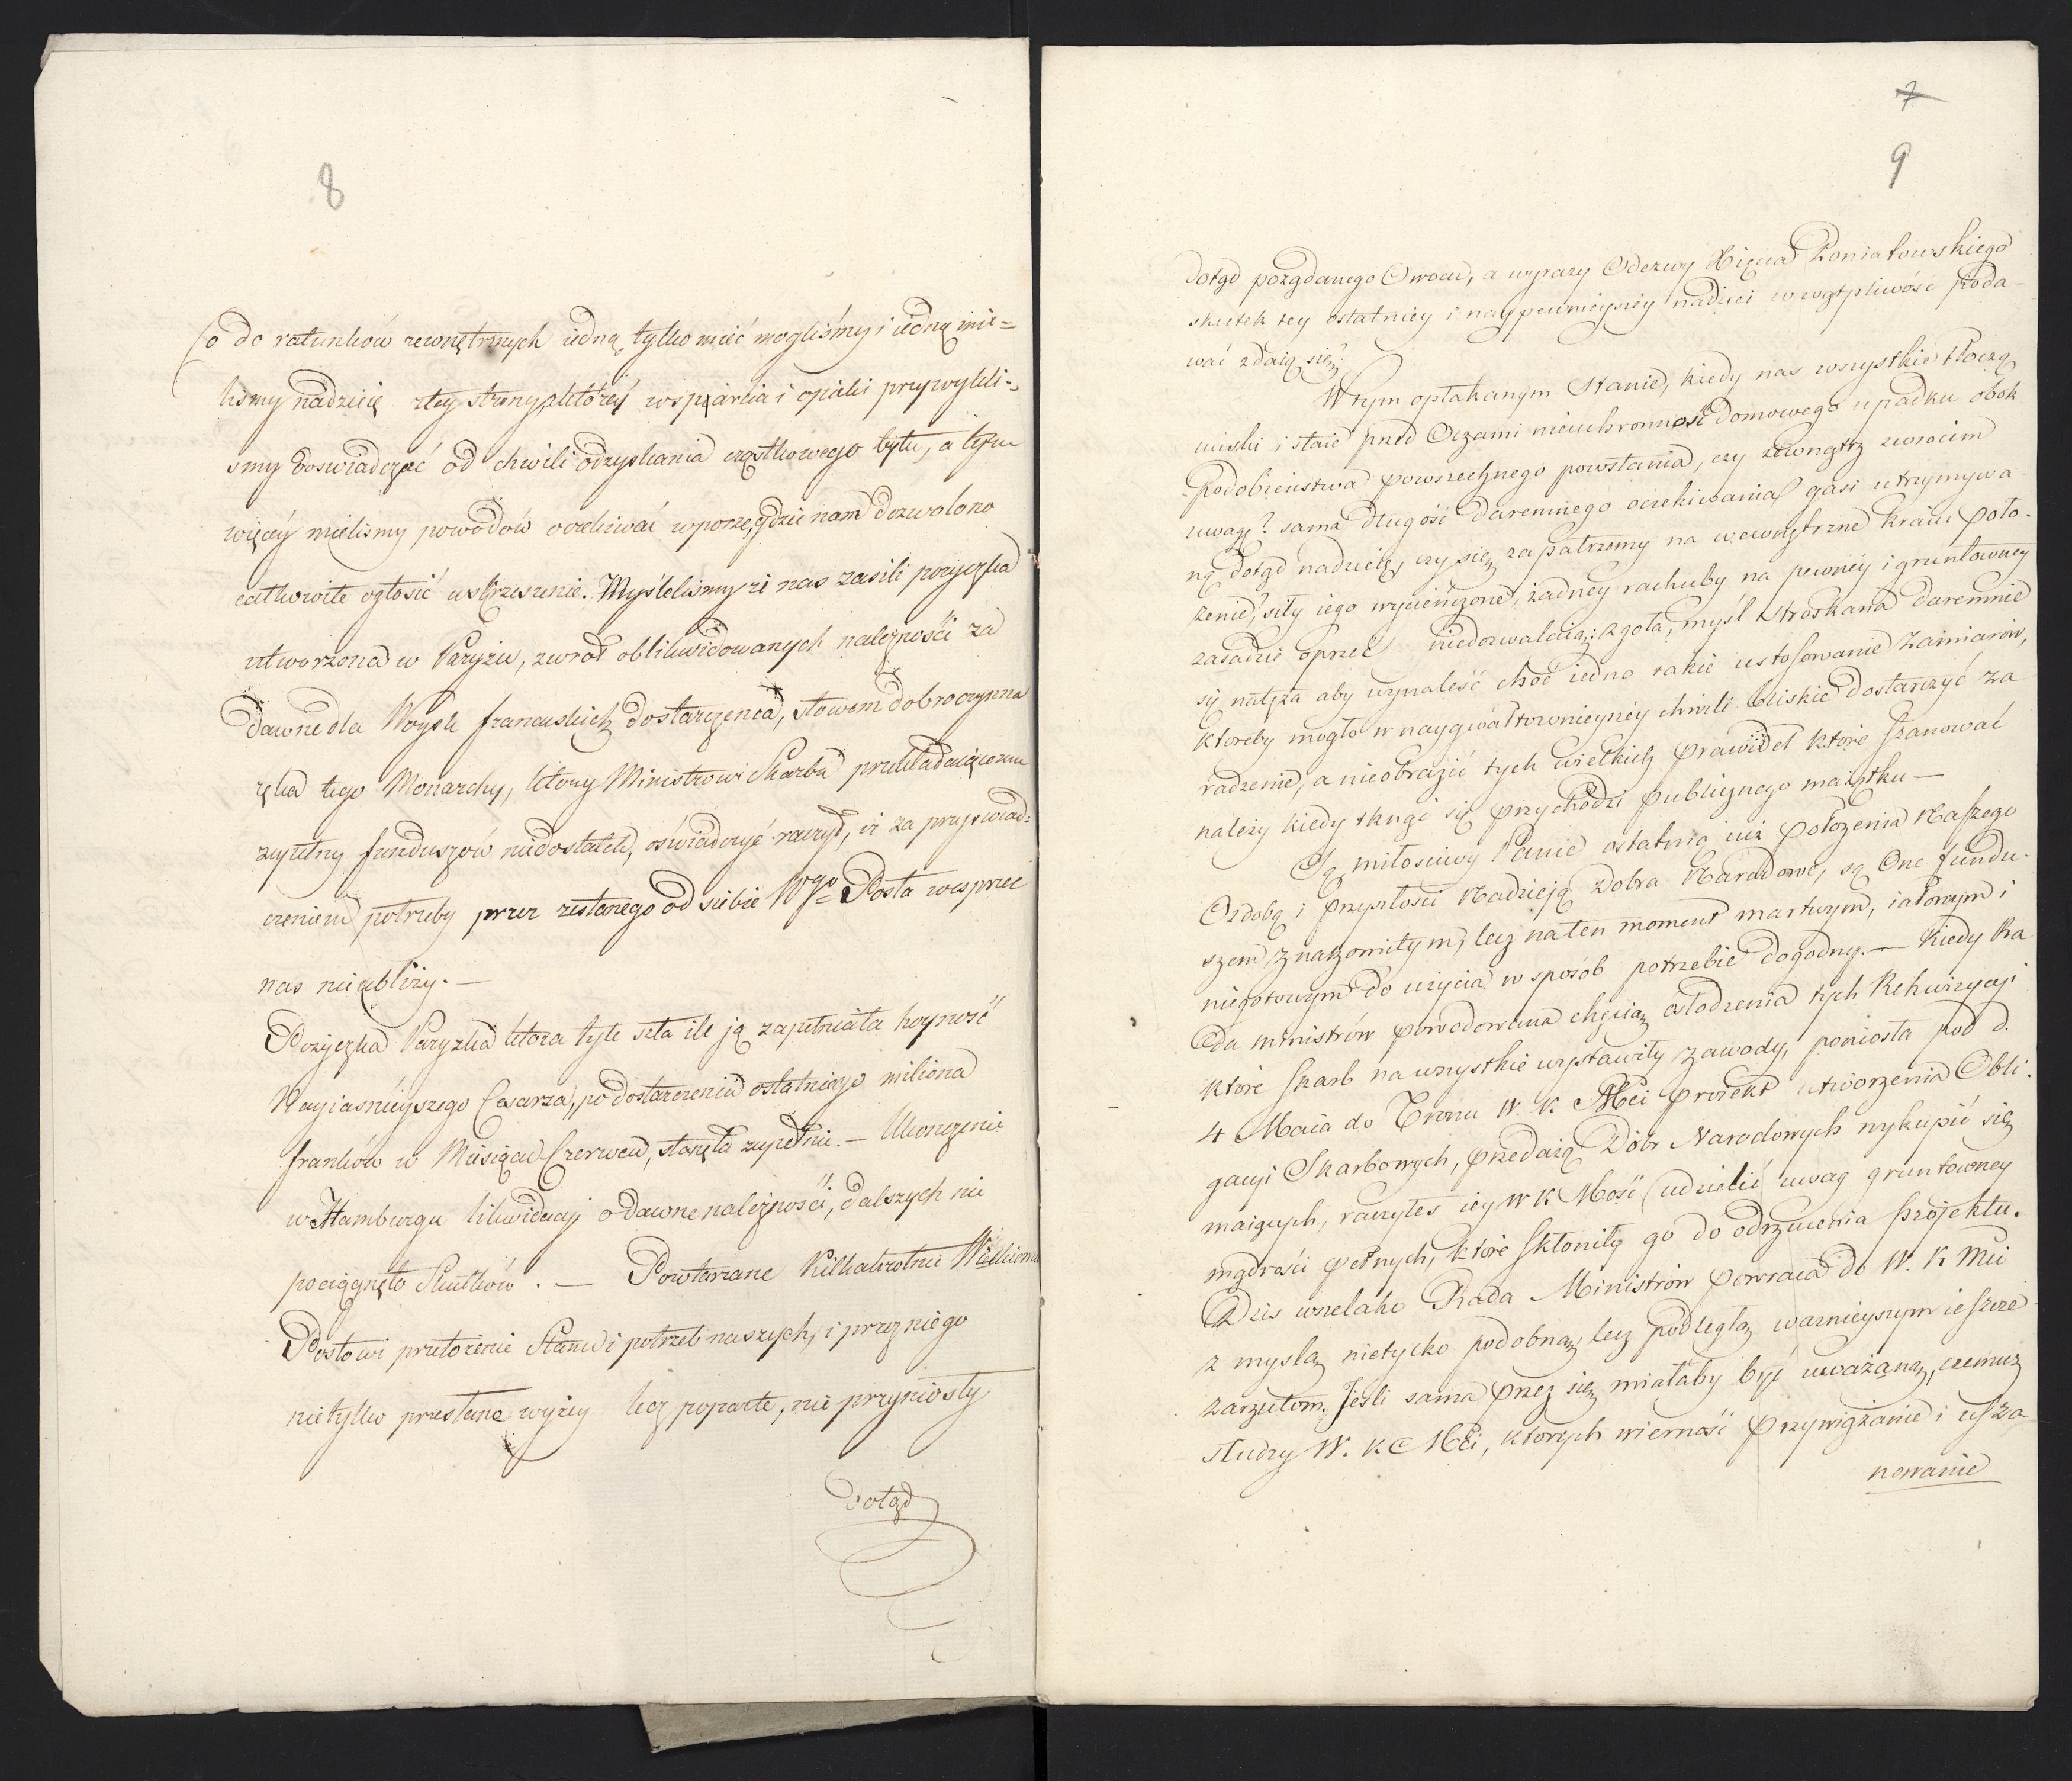 8
Co do ratunków zewnętrznych iedną tylko mieć mogliśmy i iedną mie=
liśmy nadzieię z tey strony z którey wsparcia i opieki przywykli=
smy doswiadczać od chwili odzyskania cząstkowego bytu, a tym
więcéy mielismy powodów oczekiwać w porze, gdzie nam dozwolono
całkowite ogłosić wskrzeszenie. Myślelismy iż nas zasili pożyczka
utworzona w Paryżu, zwrot oblikwidowanych należności za
dawne dla Woysk francuskich dostarczenia, słowem dobroczynna
ręka tego Monarchy, który Ministrowi Skarbu przekładaiącemu
zupełny funduszów niedostatek, oświadczyć raczył, iż za przyświad=
czeniem potrzeby przez zesłanego od siebie Wgo Posła wesprzec
nas nieubliży. —
Pożyczka Paryzka która tyle szła ile ją zapełniała hoyność
Nayiaśnieyszego Cesarza, po dostarczeniu ostatniego miliona
franków w Miesiącu Czerwcu, stanęła zupełnie. — Ukonczenie
w Hamburgu likwidacyi o dawne należności, dalszych nie
pociągnęło Skutków. — Powtarzane kilkakrotnie Wielkiemu
Posłowi przełożenie Stanu i potrzeb naszych, i przez niego
nie tylko przesłane wyżey lecz poparte, nie przyniosły
dotąd
7
9
dotąd pożądanego Owocu, a wyrazy Odezwy Xięcia Poniatowskiego
skutek tey ostatniey i naypewnieyszey nadziei w wątpliwość poda-
wać zdaią się.
W tym opłakanym Stanie, kiedy nas wszystkie tłoczą
uciski i staie przed Oczami nieuchronność domowego upadku obok
podobieństwa powszechnego powstania, czy zewnątrz zwrocim
uwagę? sama długość daremnego oczekiwania gasi utrzymywa-
ną dotąd nadzieię, czy się zapatrzemy na wewnętrzne kraiu poło-
żenie, siły iego wycieńczone, żadney rachuby na pewnéy i gruntowney
zasadzie oprzeć niedozwalaią; zgoła, myśl stroskana daremnie
się natęża aby wynaleść choć iedno takie ustosowanie Zamiarów,
ktoreby mogło w naygwałtownieyszéy chwili bliskie dostarczyć za
radzenie, a nieobrazić tych wielkich prawideł które szanować
należy kiedy tknąć się przychodzi publicznego maiątku —
Są miłosciwy Panie ostatnią iuż położenia Naszego
Ozdobą i przyszłości Nadzieją Dobra Narodowe, są One fundu-
szem znakomitym, lecz na ten moment martwym, iałowym i
niegotowym do użycia w sposób potrzebie dogodny. — Kiedy Ra
da ministrów powodowana chęcią osłodzenia tych Rekwizycyi
które skarb na wszystkie wystawiły zawody, poniosła pod d.
4 Maia do Tronu W. K. Mci proiekt utworzenia Obli-
gacyi Skarbowych, przedażą Dóbr Narodowych wykupić się
maiących, raczyłeś iey W K Mość udzielić uwag gruntowney
mądrości pełnych, które skłoniły go do odrzucenia projektu.
Dzis wszelako Rada Ministrów powraca do W. K Mci
z myslą nietylko podobną, lecz podległą ważnieyszym ieszcze
zarzutom. Jesli sama przez się miałaby być uważaną, czemuż
słudzy W. K Mci, których wierność przywiązanie i usza
nowanie